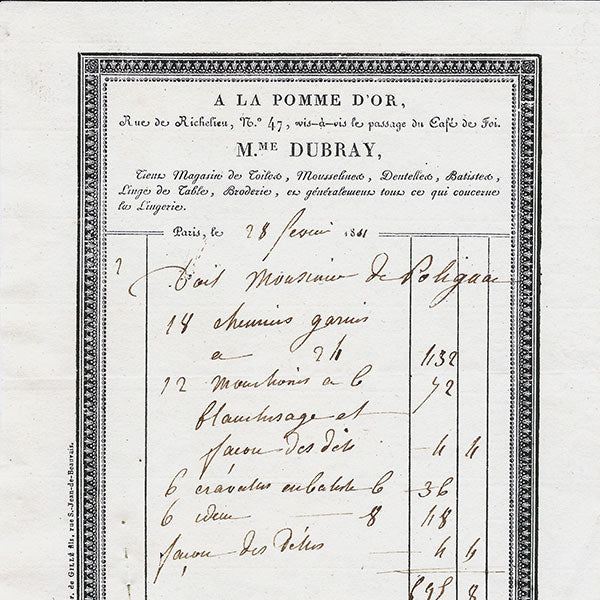 A LA POMME D'OR,
Rue de Richelieu, N.º 47, vis-à-vis le passage du Café de Foi.
M.ME DUBRAY,
Tient Magasin de Toiles, Mousselines, Dentelles, Batistes,
Linge de Table, Broderie, et généralement tout ce qui concerne
la Lingerie.
Paris, le 28 fevrier 1811
Doit Monsieur de Polignac
18 chemises garnis
a 24 432
12 mouchoirs a 6 72
blanchissage et
façon des dits 4 4
6 cravattes en batiste 6 36
6 idem 8 48
façon des dittes 4 4
8
de GILLÉ fils, rue S.-Jean-de-Beauvais.